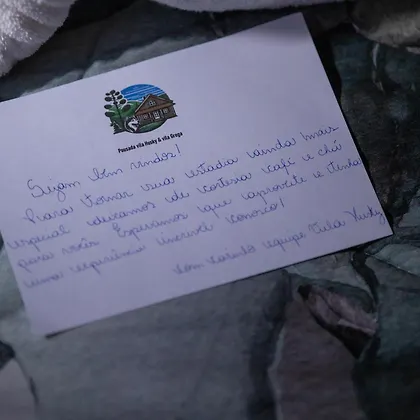 Pousada vila Husky & vila Grega
Sejam bem vindos!
Para tornar sua estadia ainda mais
especial deixamos de cortesia café e chá
para vocês. Esperamos que aproveite e tenha
uma experiência incrível conosco!
com carinho equipe Vila Husky